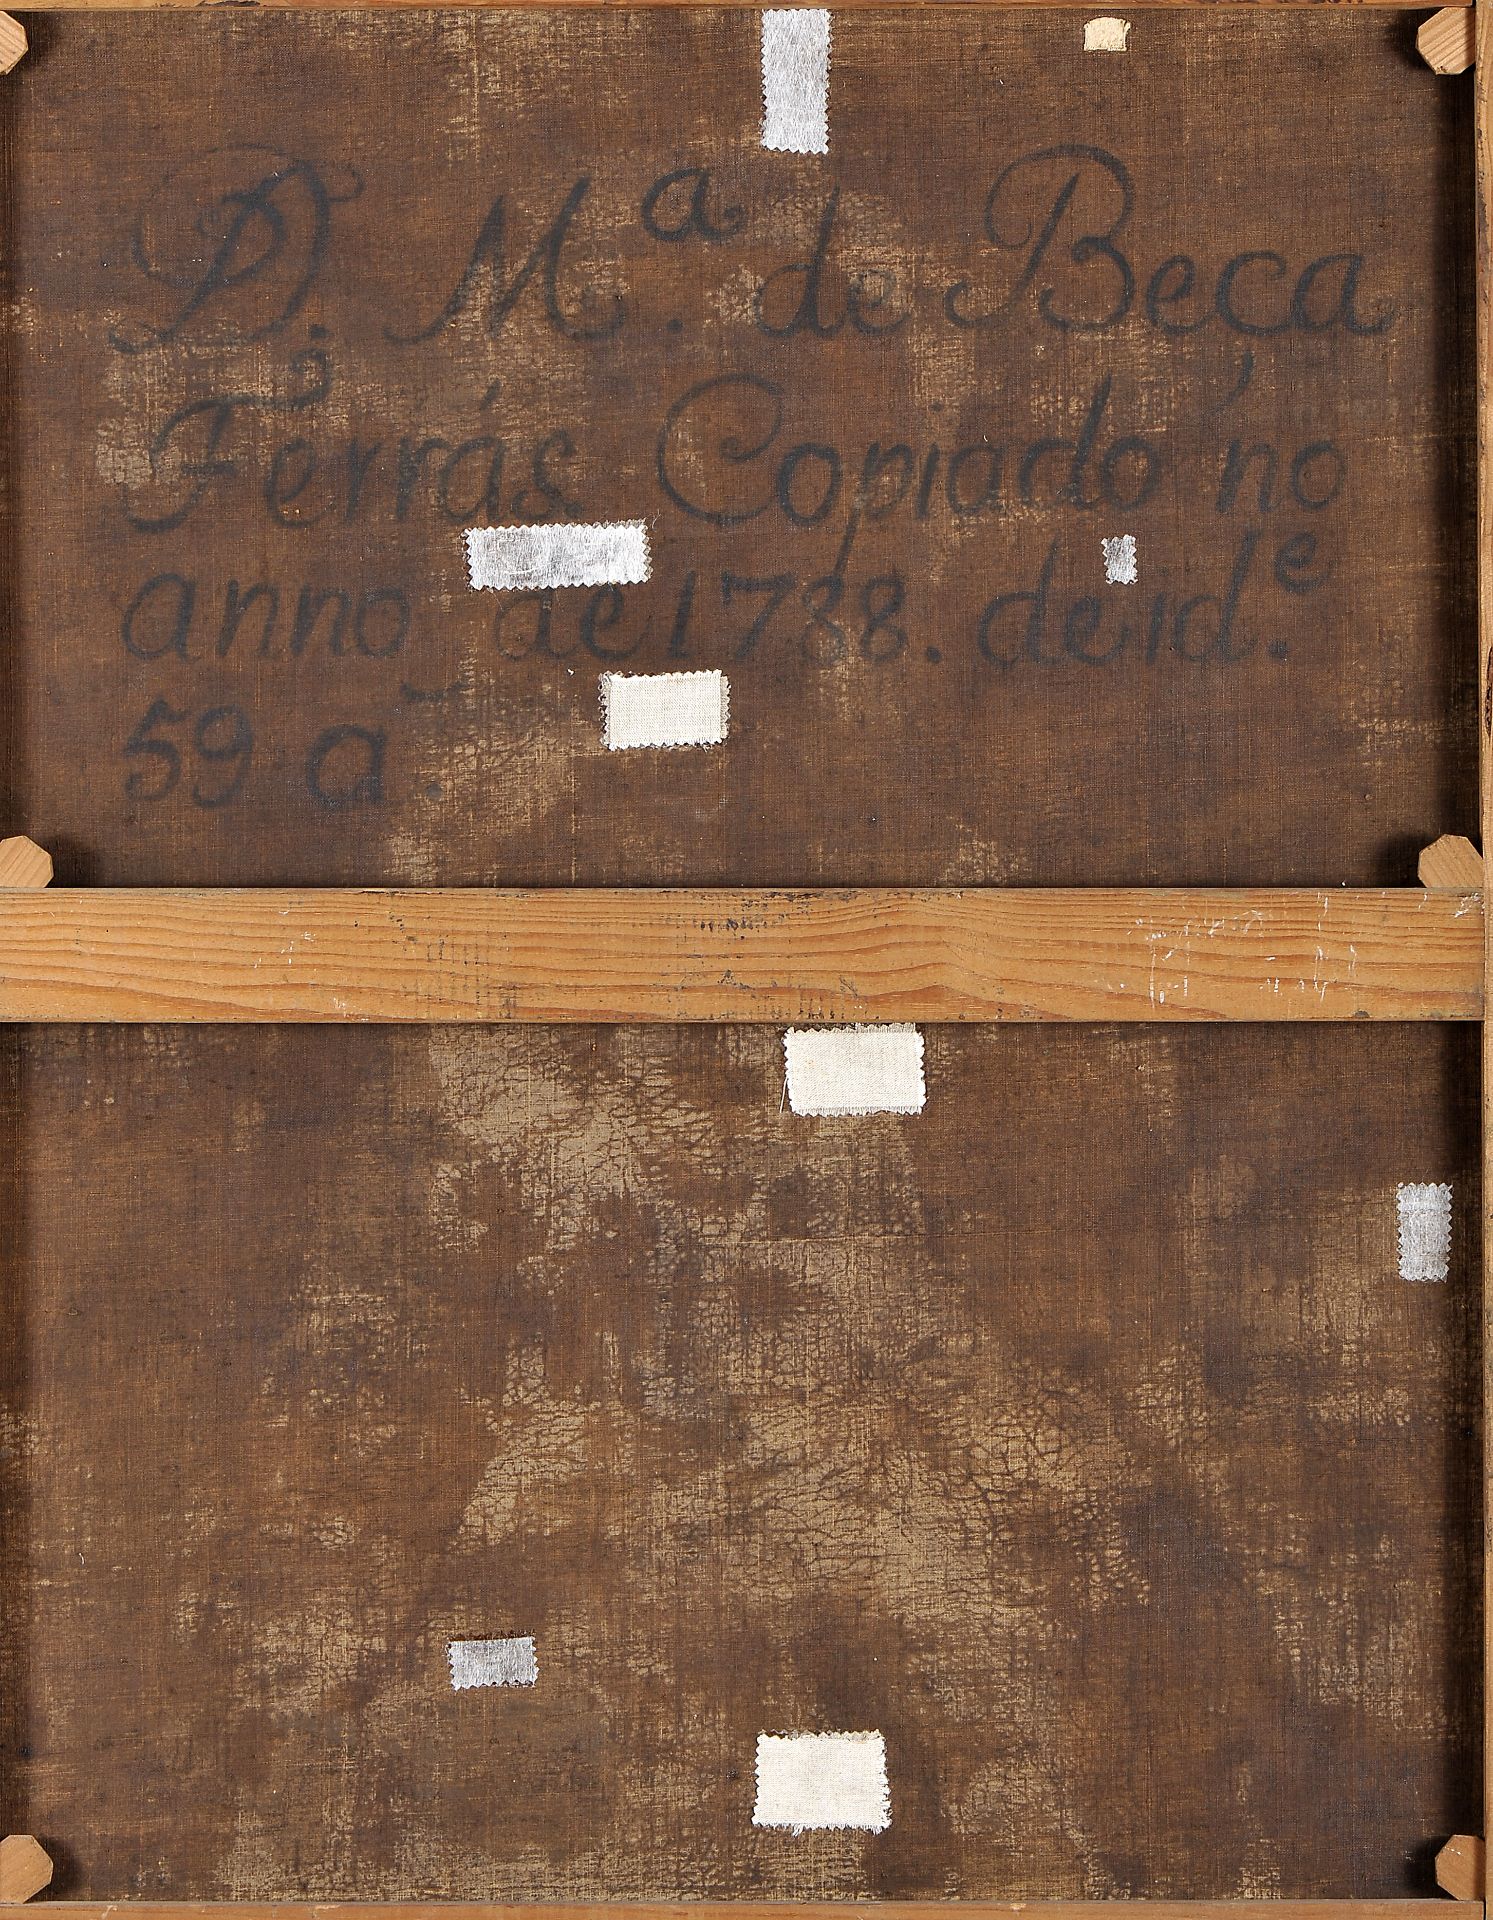 D. M.ª de Beca
Ferrás. Copiado no
anno de 1788. de id.e
59 a.